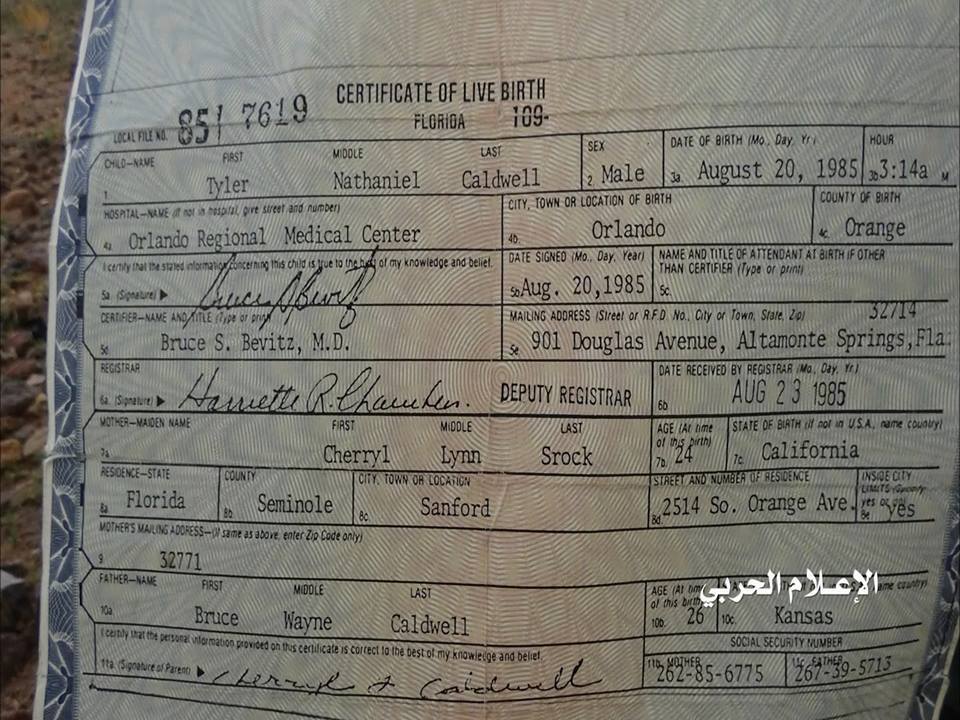 CERTIFICATE OF LIVE BIRTH
FLORIDA 109-
LOCAL FILE NO. 851 7619
CHILD—NAME FIRST MIDDLE LAST SEX DATE OF BIRTH (Mo., Day, Yr.) HOUR
1. Tyler Nathaniel Caldwell 2. Male 3a. August 20, 1985 3b. 3:14a M
HOSPITAL—NAME (If not in hospital, give street and number) CITY, TOWN OR LOCATION OF BIRTH COUNTY OF BIRTH
4a. Orlando Regional Medical Center 4b. Orlando 4c. Orange
I certify that the stated information concerning this child is true to the best of my knowledge and belief. DATE SIGNED (Mo., Day, Year) NAME AND TITLE OF ATTENDANT AT BIRTH IF OTHER
THAN CERTIFIER (Type or print)
5a. (Signature) ▶ 5b. Aug. 20,1985 5c.
CERTIFIER—NAME AND TITLE (Type or print) MAILING ADDRESS (Street or R.F.D. No., City or Town, State, Zip) 32714
5d. Bruce S. Bevitz, M.D. 5e. 901 Douglas Avenue, Altamonte Springs,Fla.
REGISTRAR DATE RECEIVED BY REGISTRAR (Mo., Day, Yr.)
6a. (Signature) ▶ DEPUTY REGISTRAR 6b. AUG 23 1985
MOTHER—MAIDEN NAME FIRST MIDDLE LAST AGE (At time of this birth) STATE OF BIRTH (If not in U.S.A., name country)
7a. Cherryl Lynn Srock 7b. 24 7c. California
RESIDENCE—STATE COUNTY CITY, TOWN OR LOCATION STREET AND NUMBER OF RESIDENCE INSIDE CITY LIMITS
8a. Florida 8b. Seminole 8c. Sanford 8d. 2514 So. Orange Ave. 8e. yes
MOTHER'S MAILING ADDRESS—(If same as above, enter Zip Code only)
9 32771
FATHER—NAME FIRST MIDDLE LAST AGE (At time of this birth) name country)
الإعلام الحربي
10a. Bruce Wayne Caldwell 10b. 26 10c. Kansas
I certify that the personal information provided on this certificate is correct to the best of my knowledge and belief. SOCIAL SECURITY NUMBER
11a. (Signature of Parent) ▶ Cherryl L Caldwell 11b. MOTHER [SSN withheld] 11c. FATHER [SSN withheld]